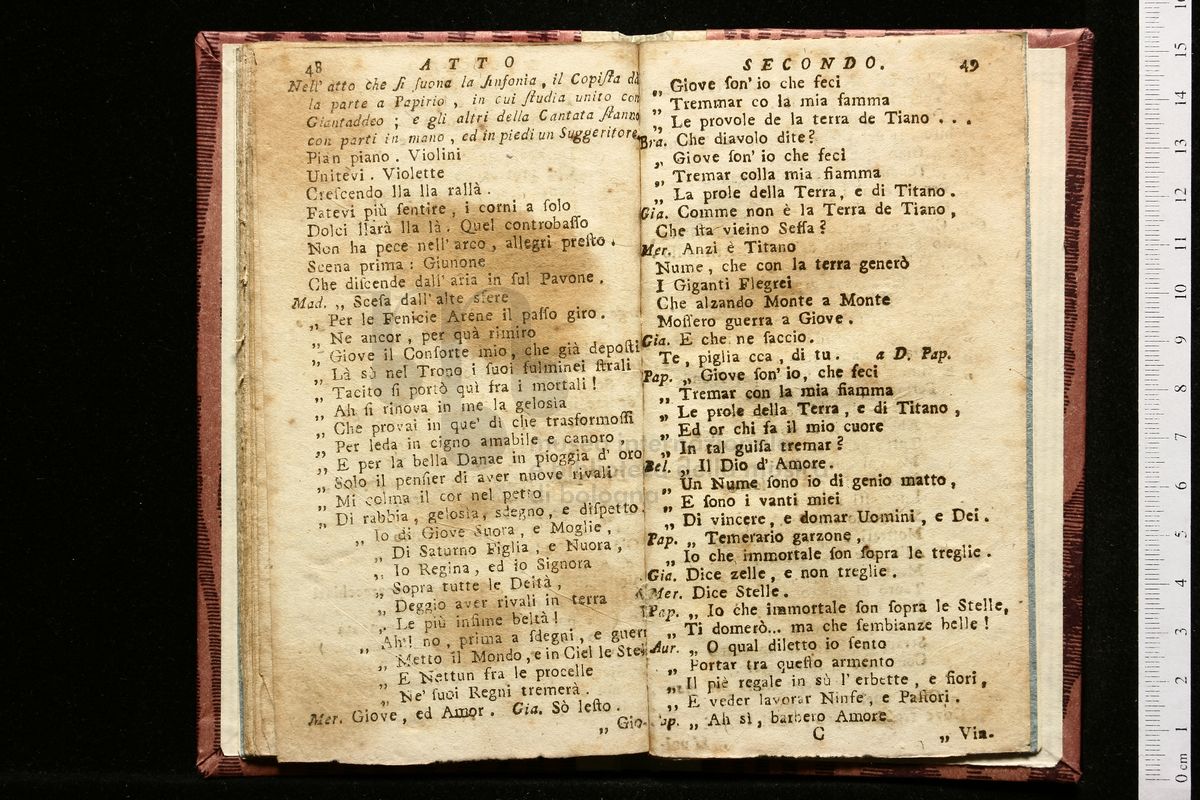 48 ATTO
Nell' atto che ſi ſuona la ſinfonia, il Copiſta dà
la parte a Papirio, in cui ſtudia unito con
Giantaddeo; e gli altri della Cantata ſtanno
con parti in mano, ed in piedi un Suggeritore.
Pian piano. Violini
Unitevi. Violette
Creſcendo lla lla rallà.
Fatevi più ſentire, i corni a ſolo
Dolci llarà lla là. Quel controbaſſo
Non ha pece nell' arco, allegri preſto.
Scena prima: Giunone
Che diſcende dall' aria in ſul Pavone.
Mad. „ Sceſa dall' alte sfere
„ Per le Fenicie Arene il paſſo giro.
„ Ne ancor, per quà rimiro
„ Giove il Conſorte mio, che già depoſti
„ Là sù nel Trono i ſuoi fulminei ſtrali
„ Tacito ſi portò quì fra i mortali!
„ Ah ſi rinova in me la geloſìa
„ Che provai in que' dì che trasformoſſi
„ Per leda in cigno amabile e canoro,
„ E per la bella Danae in pioggia d' oro
„ Solo il penſier di aver nuove rivali
„ Mi colma il cor nel petto
„ Di rabbia, geloſia, sdegno, e diſpetto.
„ Io di Giove Suora, e Moglie,
„ Di Saturno Figlia, e Nuora,
„ Io Regina, ed io Signora
„ Sopra tutte le Deità,
„ Deggio aver rivali in terra
„ Le più inſime beltà!
„ Ah! no, prima a ſdegni, e guerr
„ Metto il Mondo, e in Ciel le Ste
„ E Nettun fra le procelle
„ Ne' ſuoi Regni tremerà.
Mer. Giove, ed Amor. Gia. Sò leſto.
„ Gio-
SECONDO. 49
„ Giove ſon' io che feci
„ Tremmar co la mia famma
„ Le provole de la terra de Tiano . . .
Bra. Che diavolo dite?
„ Giove ſon' io che feci
„ Tremar colla mia fiamma
„ La prole della Terra, e di Titano.
Gia. Comme non è la Terra de Tiano,
Che ſta vicino Seſſa?
Mer. Anzi è Titano
Nume, che con la terra generò
I Giganti Flegrei
Che alzando Monte a Monte
Moſſero guerra a Giove.
Gia. E che ne faccio.
Te, piglia cca, di tu. a D. Pap.
Pap. „ Giove ſon' io, che feci
„ Tremar con la mia fiamma
„ Le prole della Terra, e di Titano,
„ Ed or chi fa il mio cuore
„ In tal guiſa tremar?
Bel. „ Il Dio d' Amore.
„ Un Nume ſono io di genio matto,
„ E ſono i vanti miei
„ Di vincere, e domar Uomini, e Dei.
Pap. „ Temerario garzone,
„ Io che immortale ſon ſopra le treglie.
Gia. Dice zelle, e non treglie.
Mer. Dice Stelle.
Pap. „ Io che immortale ſon ſopra le Stelle,
„ Ti domerò... ma che ſembianze belle!
Aur. „ O qual diletto io ſento
„ Portar tra queſto armento
„ Il piè regale in sù l' erbette, e fiori,
„ E veder lavorar Ninfe, e Paſtori.
Pap. „ Ah sì, barbero Amore
C „ Via.